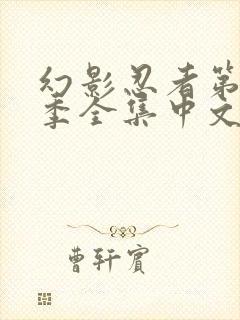 幻影忍者第
季全集中文
曹轩宾